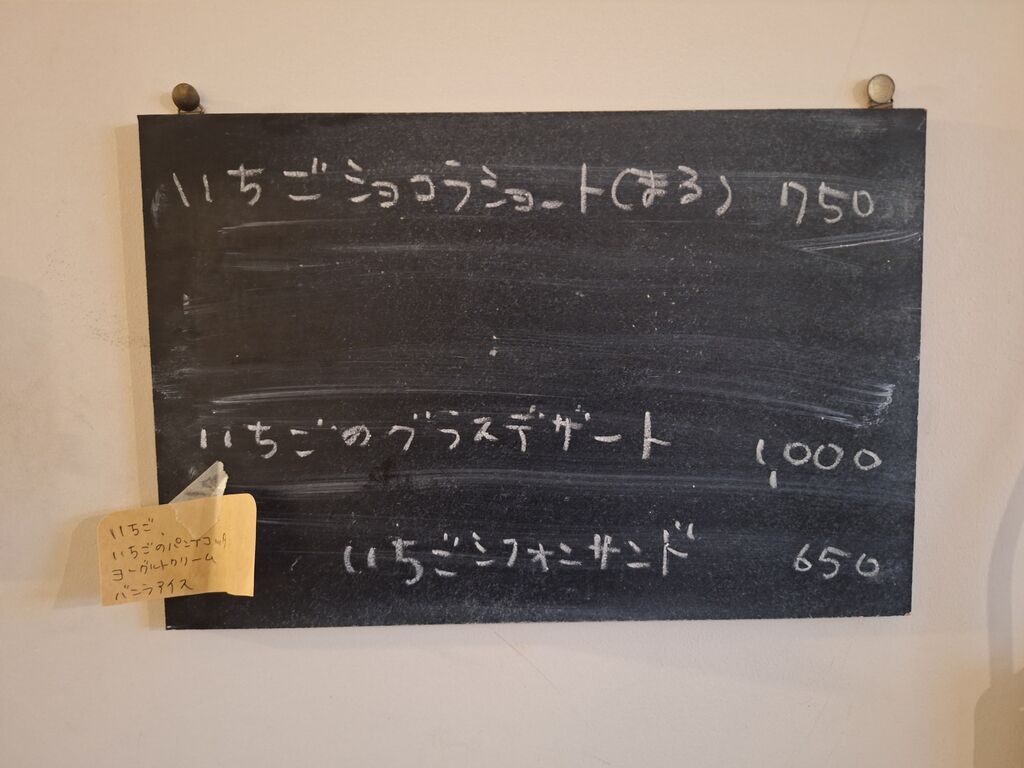 いちごショコラショート(まる) 750
いちごのグラスデザート 1,000
いちごシフォンサンド 650
いちご
いちごのパンナコッタ
ヨーグルトクリーム
バニラアイス